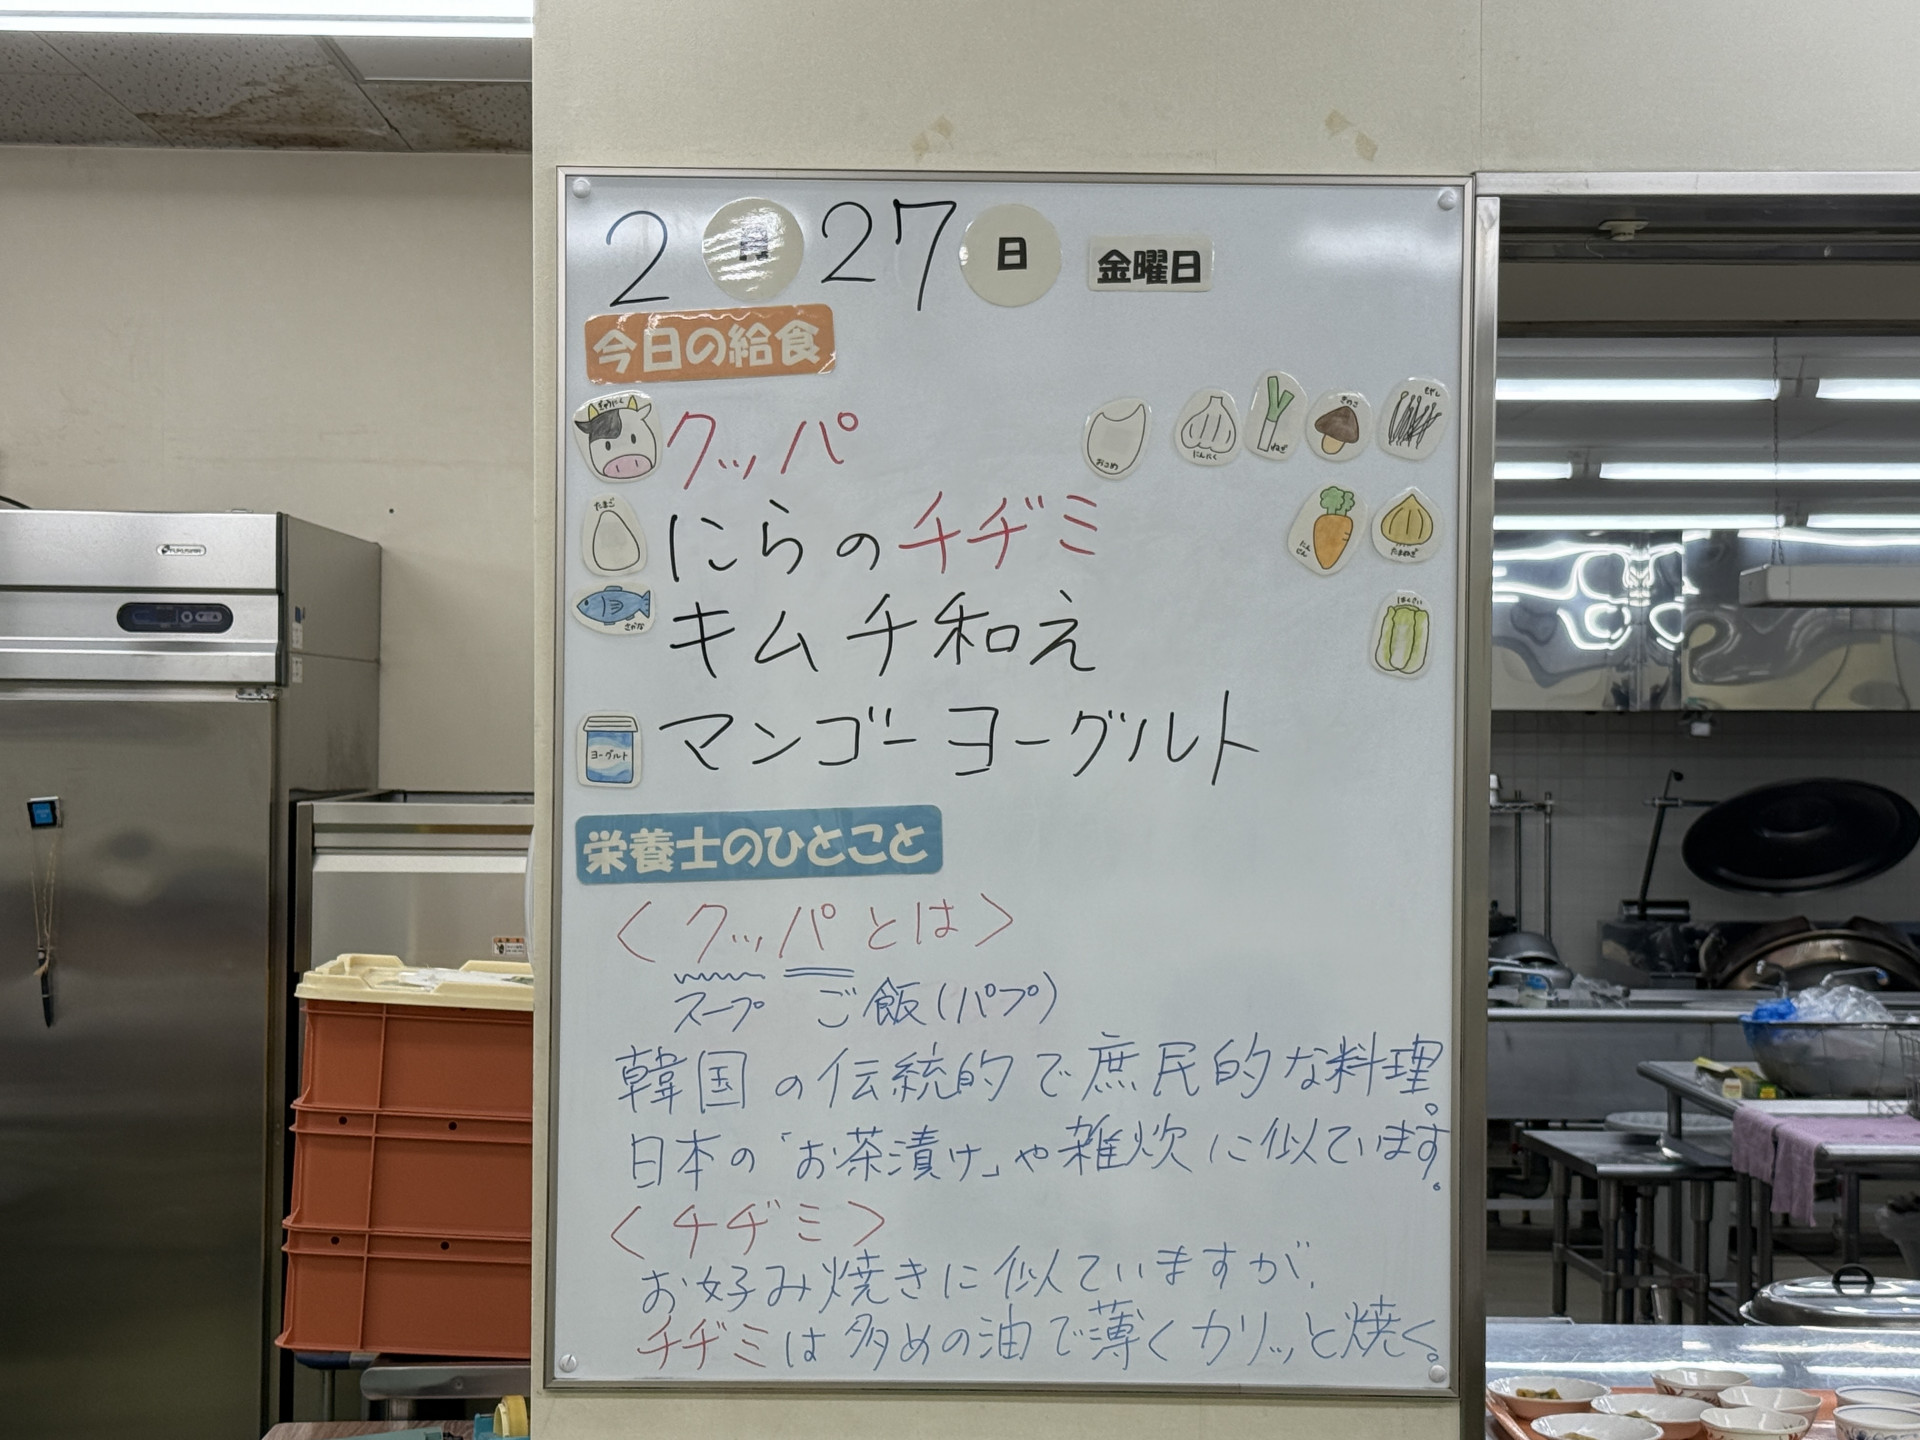 2月27日 金曜日
今日の給食
ぎゅうにく クッパ おこめ にんにく ねぎ きのこ もやし
たまご にらのチヂミ にんじん たまねぎ
さかな キムチ和え はくさい
ヨーグルト マンゴーヨーグルト
栄養士のひとこと
〈クッパとは〉
スープ ご飯(パプ)
韓国の伝統的で庶民的な料理。
日本の「お茶漬け」や雑炊に似ています。
〈チヂミ〉
お好み焼きに似ていますが、
チヂミは多めの油で薄くカリッと焼く。